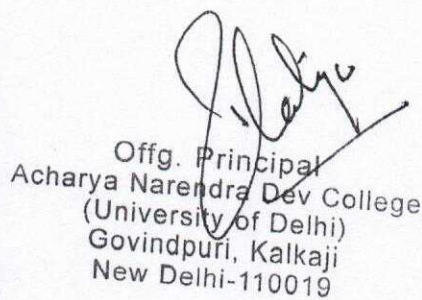 Offg. Principal
Acharya Narendra Dev College
(University of Delhi)
Govindpuri, Kalkaji
New Delhi-110019